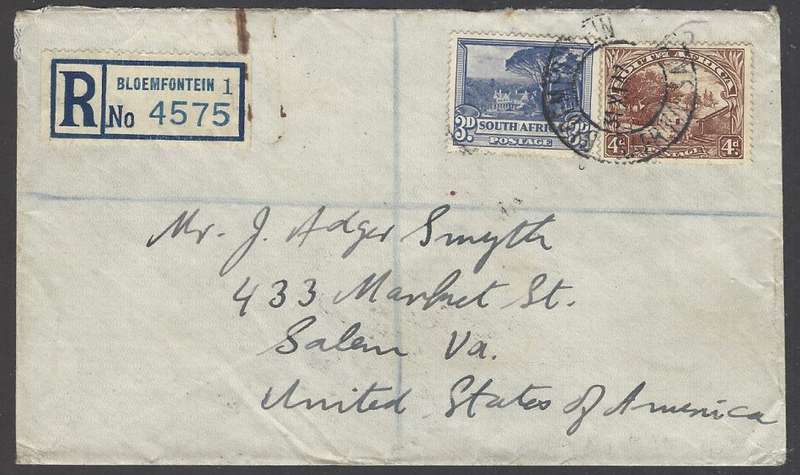 R
BLOEMFONTEIN 1
No 4575
3D SOUTH AFRI
POSTAGE
4d 4d
Mr. J. Adger Smyth
433 Market St.
Salem Va.
United States of America